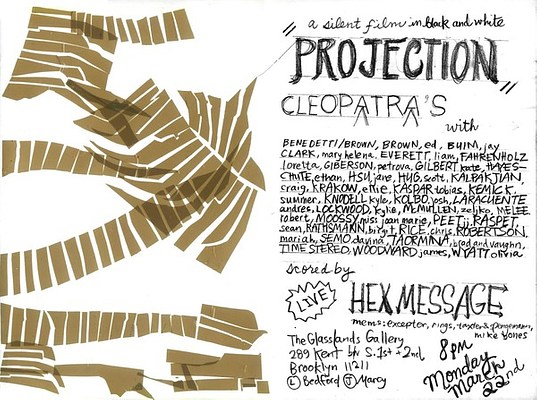 "a silent film in black and white
PROJECTION"
CLEOPATRA'S
with
BENEDETTI/BROWN, BROWN, ed, BUIM, jay
CLARK, mary helena, EVERETT, liam, FAHRENHOLZ
loretta, GIBERSON, petrova, GILBERT kate, HAYES-
CHUTE, ethan, HSU, jane, HUG, scott, KALPAKJIAN,
craig, KRAKOW, effie, KASPAR tobias, KEMICK
summer, KNODELL kyle, KOLBO, josh, LARACUENTE
andres, LOCKWOOD, kylie, McMULLEN, zeljko, McLEE
robert, MOOSSY miss joan marie, PEET jj, RASPET
sean, RATHSMANN, birgit, RICE, chris, ROBERTSON,
mariah, SEMO, davina, TAORMINA, brad and vaughn,
TIME STEREO, WOODWARD, james, WYATT olivia
scored by
LIVE! HEX MESSAGE
mems: exceptor, rings,
mike jones
The Glasslands Gallery
289 Kent btw S. 1st + 2nd
Brooklyn 11211
L Bedford J Marcy
8pm
Monday
March
22nd